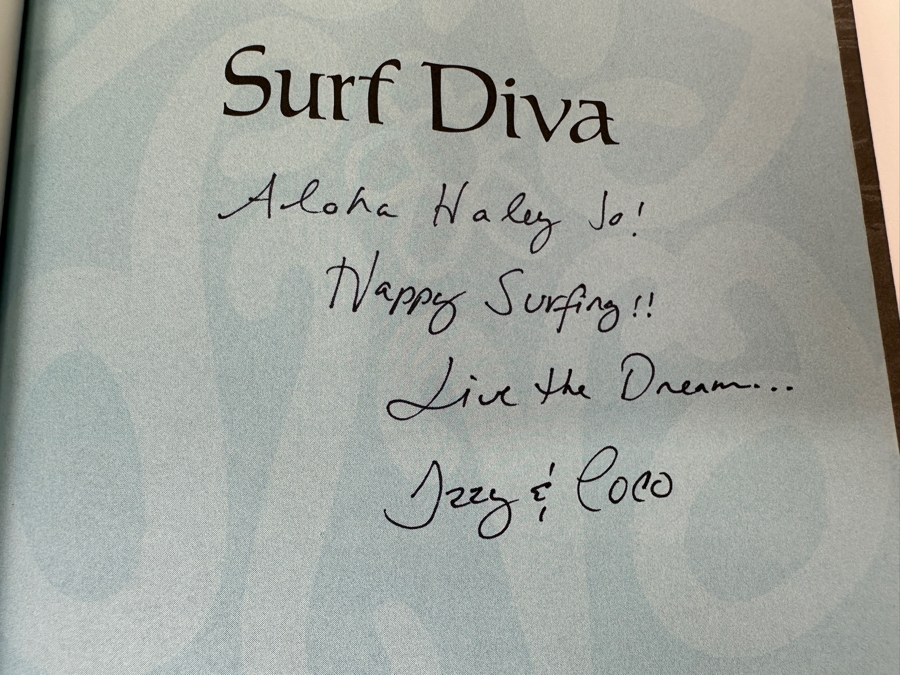 Surf Diva
Aloha Haley Jo!
Happy Surfing!!
Live the Dream...
Izzy & Coco